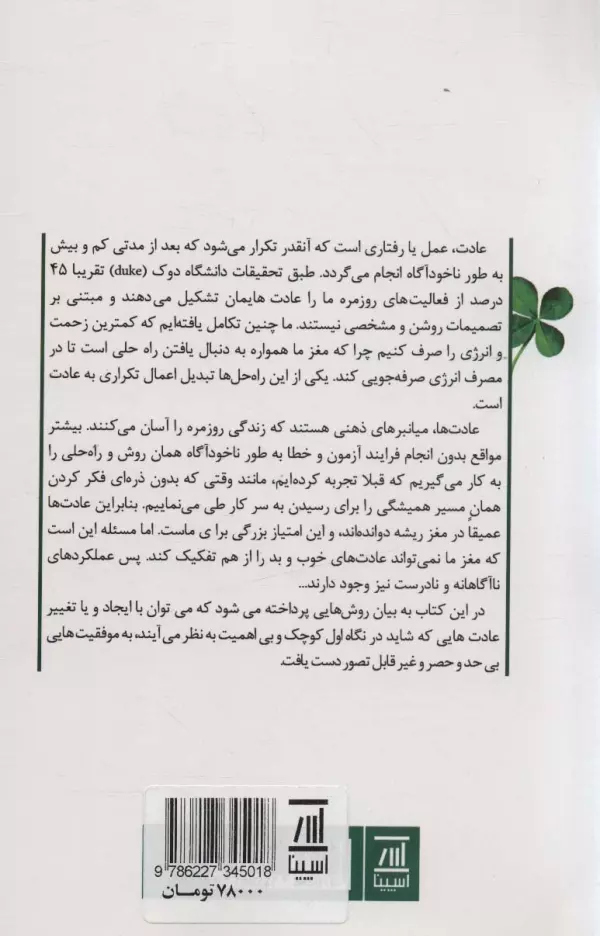 عادت، عمل یا رفتاری است که آنقدر تکرار می‌شود که بعد از مدتی کم و بیش
به طور ناخودآگاه انجام می‌گردد. طبق تحقیقات دانشگاه دوک (duke) تقریبا ۴۵
درصد از فعالیت‌های روزمره ما را عادت هایمان تشکیل می‌دهند و مبتنی بر
تصمیمات روشن و مشخصی نیستند. ما چنین تکامل یافته‌ایم که کمترین زحمت
و انرژی را صرف کنیم چرا که مغز ما همواره به دنبال یافتن راه حلی است تا در
مصرف انرژی صرفه‌جویی کند. یکی از این راه‌حل‌ها تبدیل اعمال تکراری به عادت
است.
عادت‌ها، میانبرهای ذهنی هستند که زندگی روزمره را آسان می‌کنند. بیشتر
مواقع بدون انجام فرایند آزمون و خطا به طور ناخودآگاه همان روش و راه‌حلی را
به کار می‌گیریم که قبلا تجربه کرده‌ایم، مانند وقتی که بدون ذره‌ای فکر کردن
همان مسیر همیشگی را برای رسیدن به سر کار طی می‌نماییم. بنابراین عادت‌ها
عمیقاً در مغز ریشه دوانده‌اند، و این امتیاز بزرگی برا ی ماست. اما مسئله این است
که مغز ما نمی‌تواند عادت‌های خوب و بد را از هم تفکیک کند. پس عملکردهای
ناآگاهانه و نادرست نیز وجود دارند...
در این کتاب به بیان روش‌هایی پرداخته می شود که می توان با ایجاد و یا تغییر
عادت هایی که شاید در نگاه اول کوچک و بی اهمیت به نظر می آیند، به موفقیت هایی
بی حد و حصر و غیر قابل تصور دست یافت.
اسپینا
اسپینا
9 786227 345018
۷۸۰۰۰ تومــان